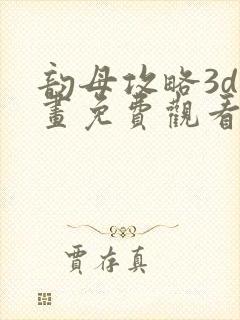 韵母攻略3d
畫免費觀看
賈存真